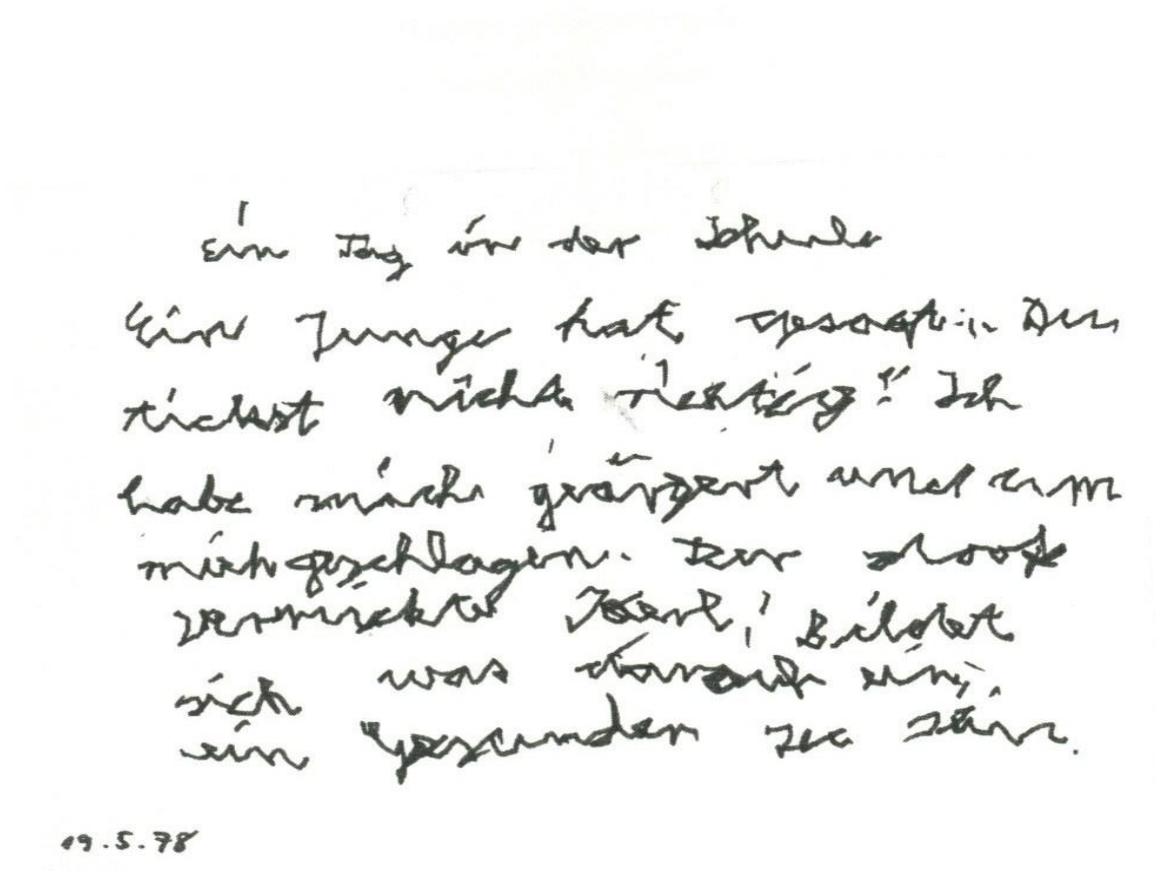 Ein Tag in der Schule
Ein Junge hat gesagt: „Du
tickst nicht richtig!" Ich
habe mich geärgert und um
mich geschlagen. Der
verrückte Kerl! Bildet
sich was darauf ein,
ein Gesunder zu sein.
19.5.78